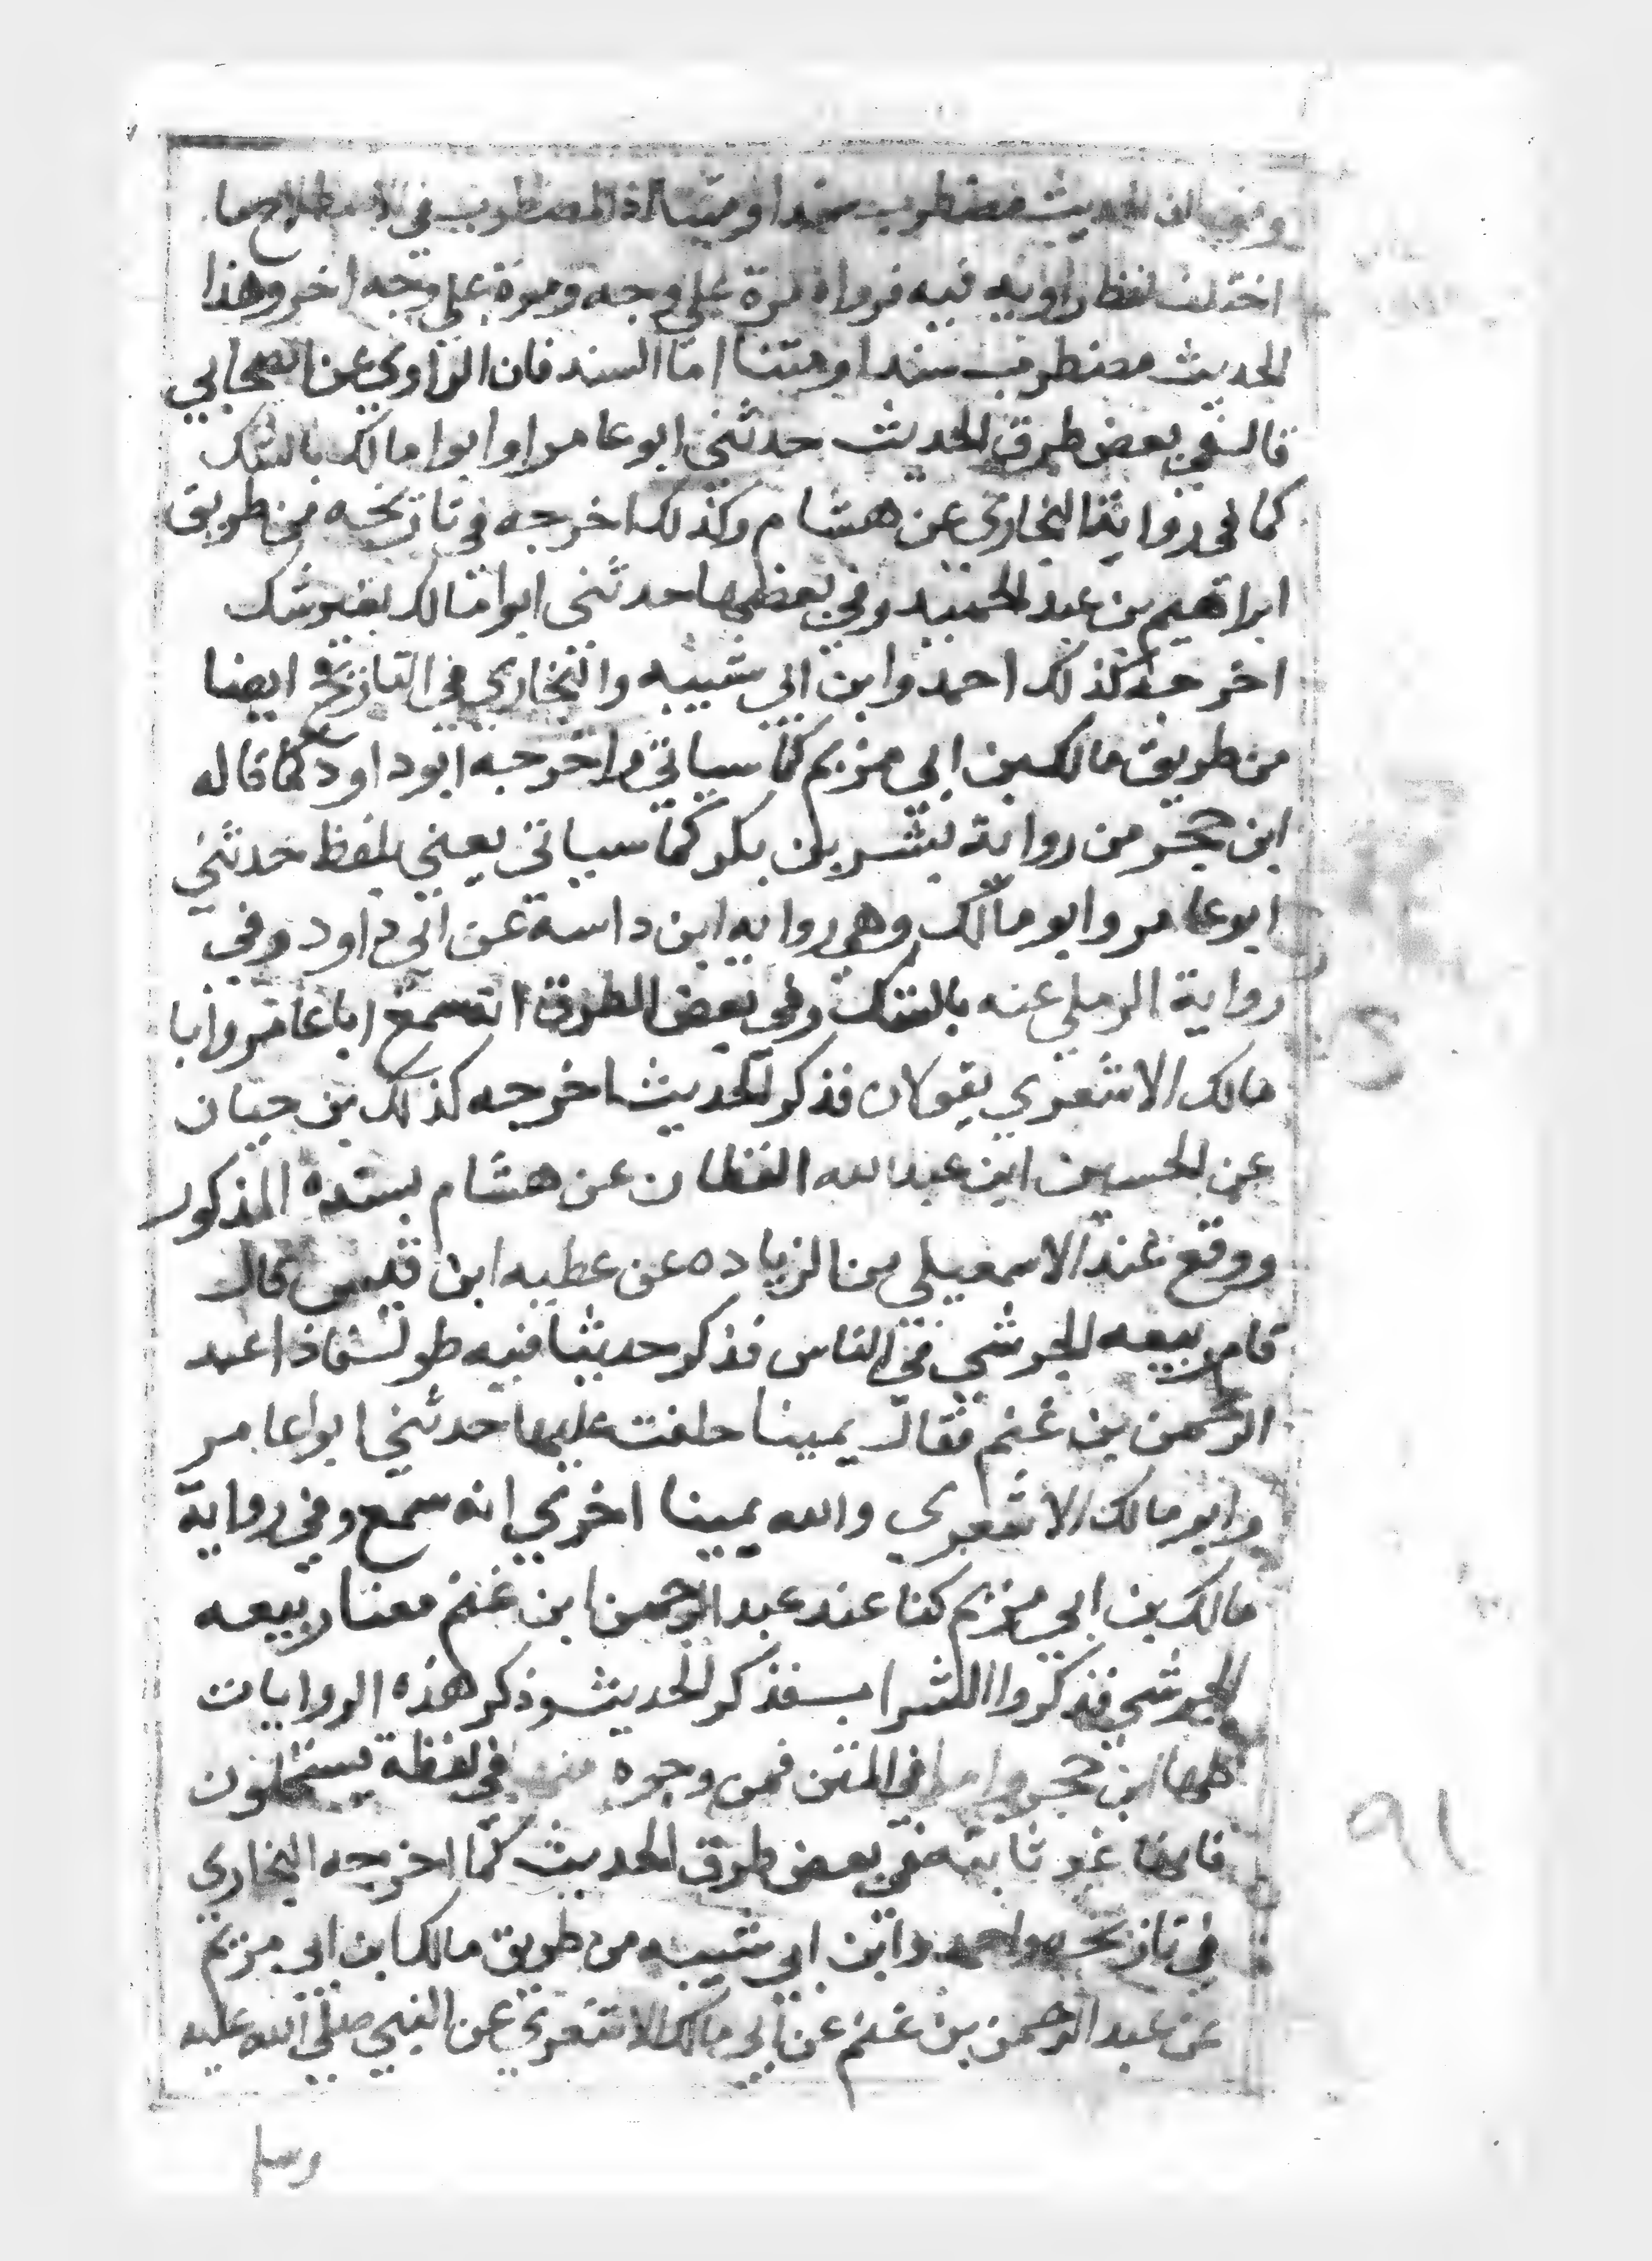 ومنها ان الحديث مضطرب سندا ومتنا اذ المضطرب في الاصطلاح ما
اختلف لفظ راويه فيه فرواه مرة علي وجه ومرة علي وجه اخر وهذا
الحديث مضطرب سندا ومتنا اما السند فان الراوي عن الصحابي
قال في بعض طرق الحديث حدثني ابو عامر او ابوا مالك بالشك
كما في رواية البخاري عن هشام وكذلك اخرجه في تاريخه من طريق
ابراهيم بن عبد الحميد وفي بعضها حدثني ابوا مالك بغير شك
اخرجه كذلك احمد وابن ابي شيبه والبخاري في التاريخ ايضا
من طريق مالك بن ابي مريم كما سياتي واخرجه ابو داود كما قاله
ابن حجر من رواية بشر بن بكر كما سياتي يعني بلفظ حدثني
ابو عامر وابو مالك وهي روايه ابن داسة عن ابي داود وفي
رواية الرملي عنه بالشك وفي بعض الطرق انه سمع ابا عامر وابا
مالك الاشعري يقولان فذكر الحديث اخرجه كذلك بن حبان
عن الحسين ابن عبد الله القطان عن هشام بسنده المذكور
ووقع عند الاسمعيلي من الزياده عن عطيه ابن قيس قال
قام ربيعه الجرشي في الناس فذكر حديثا فيه طول فاذا عبد
الرحمن بن غنم فقال يمينا حلفت عليها حدثني ابوا عامر
وابو مالك الاشعري والله يمينا اخري انه سمع وفي رواية
مالك بن ابي مريم كنا عند عبد الرحمن ابن غنم معنا ربيعه
الجرشي فذكروا الشراب فذكر الحديث وذكر هذه الروايات
كلها ابن حجر واما في المتن فمن وجوه منها في لفظة يستحلون
فانها غير ثابته في بعض طرق الحديث كما اخرجه البخاري
في تاريخه واحمد وابن ابي شيبه من طريق مالك ابن ابي مريم
عن عبد الرحمن بن غنم عن ابي مالك الاشعري عن النبي صلى الله عليه
وسلم
٩١